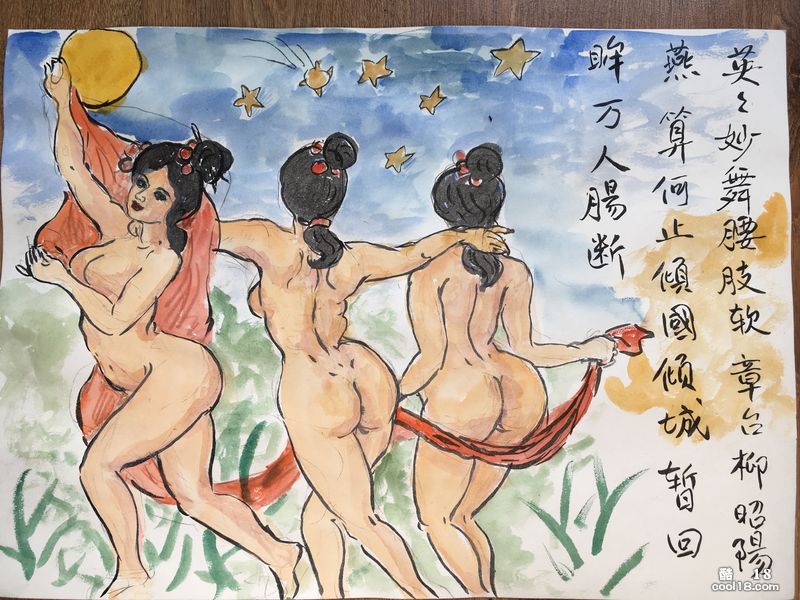 英々妙舞腰肢软章台柳昭陽
燕算何止傾國傾城暂回
眸万人腸断
酷 18
cool18.com